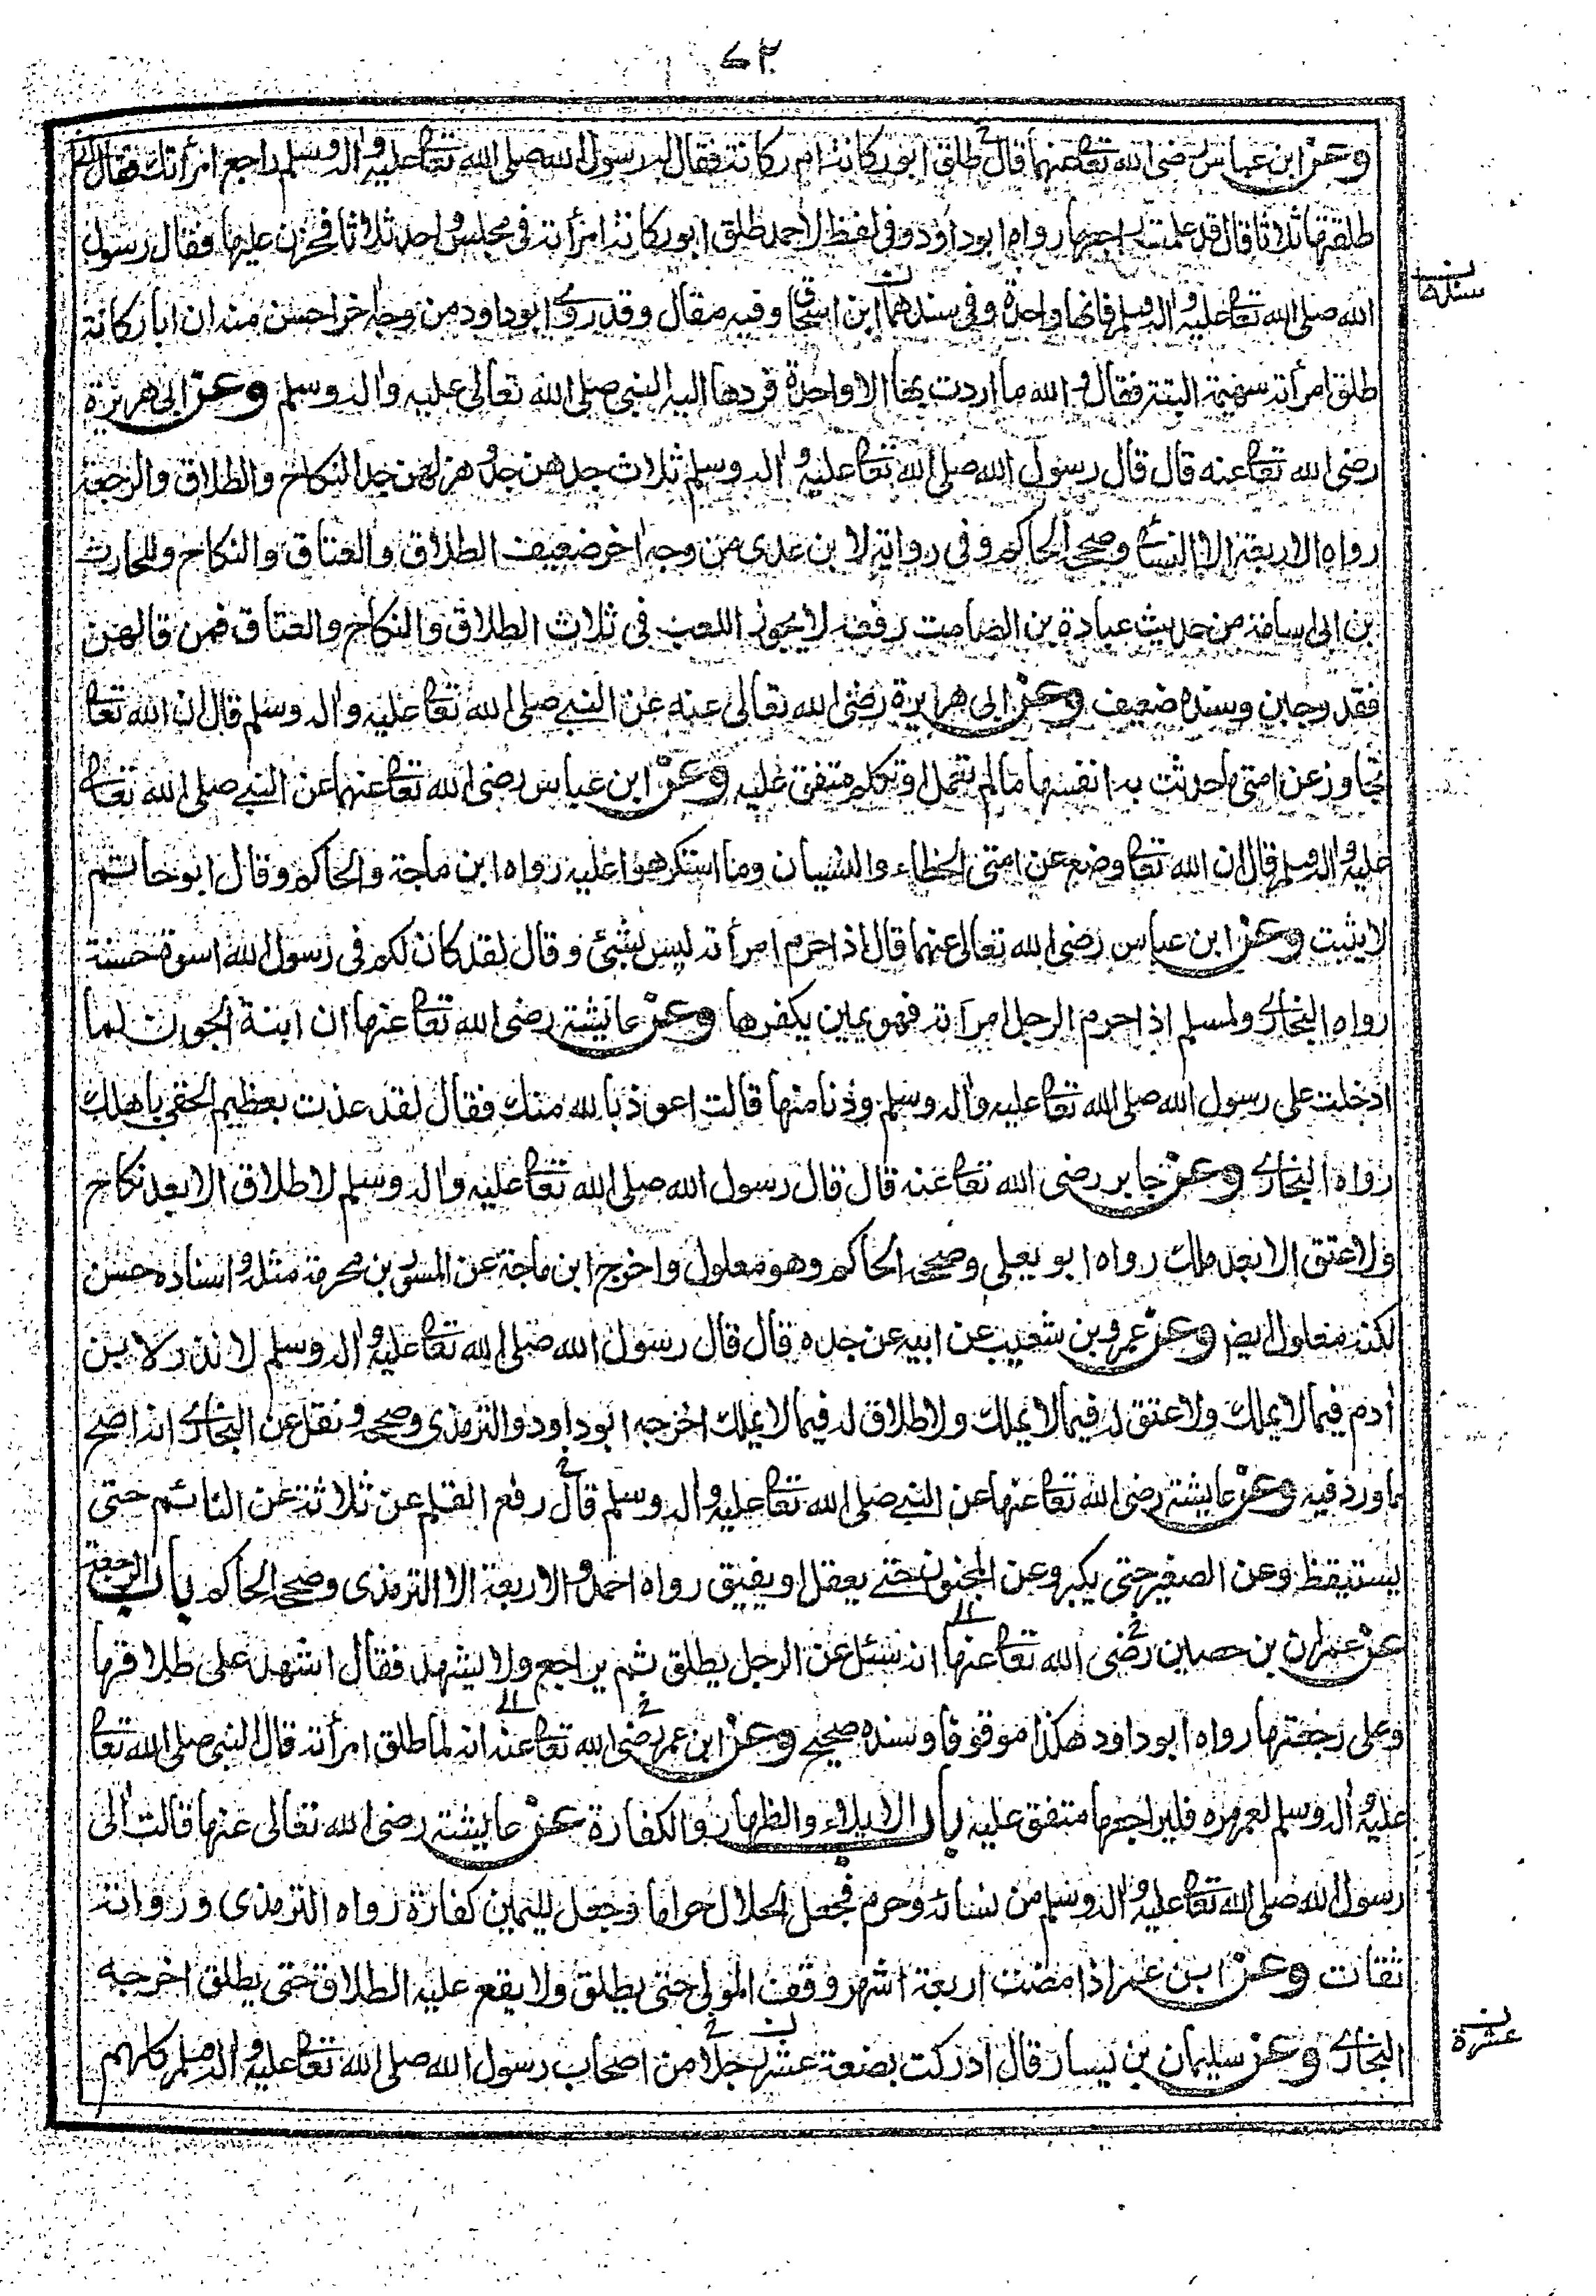 ٧٢
وعن ابن عباس رضى الله تعا عنهما قال طلق ابو ركانة ام ركانة فقال له رسول الله صلى الله تعا عليه واله وسلم راجع امرأتك فقال انى
طلقتها ثلاثا قال قد علمت راجعها رواه ابوداود وفى لفظ لاحمد طلق ابو ركانة امرأته فى مجلس واحد ثلاثا فحزن عليها فقال رسول
الله صلى الله تعا عليه واله وسلم فانها واحدة وفى سندهما ابن اسحاق وفيه مقال وقد روى ابوداود من وجه اخر احسن منه ان ابا ركانة
سندها
طلق امرأته سهيمة البتة فقال والله ما اردت بها الا واحدة فردها اليه النبى صلى الله تعالى عليه واله وسلم وعن ابى هريرة
رضى الله تعا عنه قال قال رسول الله صلى الله تعا عليه واله وسلم ثلاث جدهن جد وهزلهن جد النكاح والطلاق والرجعة
رواه الاربعة الا النسائ وصححه الحاكم وفى رواية لابن عدى من وجه اخر ضعيف الطلاق والعتاق والنكاح وللحارث
بن ابى اسامة من حديث عبادة بن الصامت رفعه لا يجوز اللعب فى ثلاث الطلاق والنكاح والعتاق فمن قالهن
فقد وجبن وسنده ضعيف وعن ابى هريرة رضى الله تعالى عنه عن النبي صلى الله تعا عليه واله وسلم قال ان الله تعا
تجاوز عن امتى ما حدثت به انفسها ما لم تعمل او تكلم متفق عليه وعن ابن عباس رضى الله تعا عنهما عن النبي صلى الله تعا
عليه واله وسلم قال ان الله تعا وضع عن امتى الخطاء والنسيان وما استكرهوا عليه رواه ابن ماجة والحاكم وقال ابو حاتم
لا يثبت وعن ابن عباس رضى الله تعالى عنهما قال اذا حرم امرأته ليس بشئ وقال لقد كان لكم فى رسول الله اسوة حسنة
رواه البخارى ولمسلم اذا حرم الرجل امرأته فهو يمين يكفرها وعن عايشة رضى الله تعا عنها ان ابنة الجون لما
ادخلت على رسول الله صلى الله تعا عليه واله وسلم ودنا منها قالت اعوذ بالله منك فقال لقد عذت بعظيم الحقى باهلك
رواه البخارى وعن جابر رضى الله تعا عنه قال قال رسول الله صلى الله تعا عليه واله وسلم لا طلاق الا بعد نكاح
ولا عتق الا بعد ملك رواه ابو يعلى وصححه الحاكم وهو معلول واخرج ابن ماجة عن المسور بن مخرمة مثله واسناده حسن
لكنه معلول ايضا وعن عمرو بن شعيب عن ابيه عن جده قال قال رسول الله صلى الله تعا عليه واله وسلم لا نذر لابن
أدم فيما لا يملك ولا عتق له فيما لا يملك ولا طلاق له فيما لا يملك اخرجه ابوداود والترمذى وصححه ونقل عن البخارى انه اصح
ما ورد فيه وعن عايشة رضى الله تعا عنها عن النبي صلى الله تعا عليه واله وسلم قال رفع القلم عن ثلاثة عن النائم حتى
يستيقظ وعن الصغير حتى يكبر وعن المجنون حتى يعقل او يفيق رواه احمد والاربعة الا الترمذى وصححه الحاكم باب الرجعة
عن عمران بن حصين رضى الله تعا عنهما انه سئل عن الرجل يطلق ثم يراجع ولا يشهد فقال اشهد على طلاقها
وعلى رجعتها رواه ابوداود هكذا موقوفا وسنده صحيح وعن ابن عمر رضى الله تعا عنه انه لما طلق امرأته قال النبى صلى الله تعا
عليه واله وسلم لعمر مره فليراجعها متفق عليه باب الايلاء والظهار والكفارة عن عايشة رضى الله تعالى عنها قالت الى
رسول الله صلى الله تعا عليه واله وسلم من نسائه وحرم فجعل الحلال حراما وجعل لليمين كفارة رواه الترمذى ورواته
ثقات وعن ابن عمر اذا مضت اربعة اشهر وقف المولى حتى يطلق ولا يقع عليه الطلاق حتى يطلق اخرجه
البخارى وعن سليمان بن يسار قال ادركت بضعة عشر رجلا من اصحاب رسول الله صلى الله تعا عليه واله وسلم كلهم
عشرة